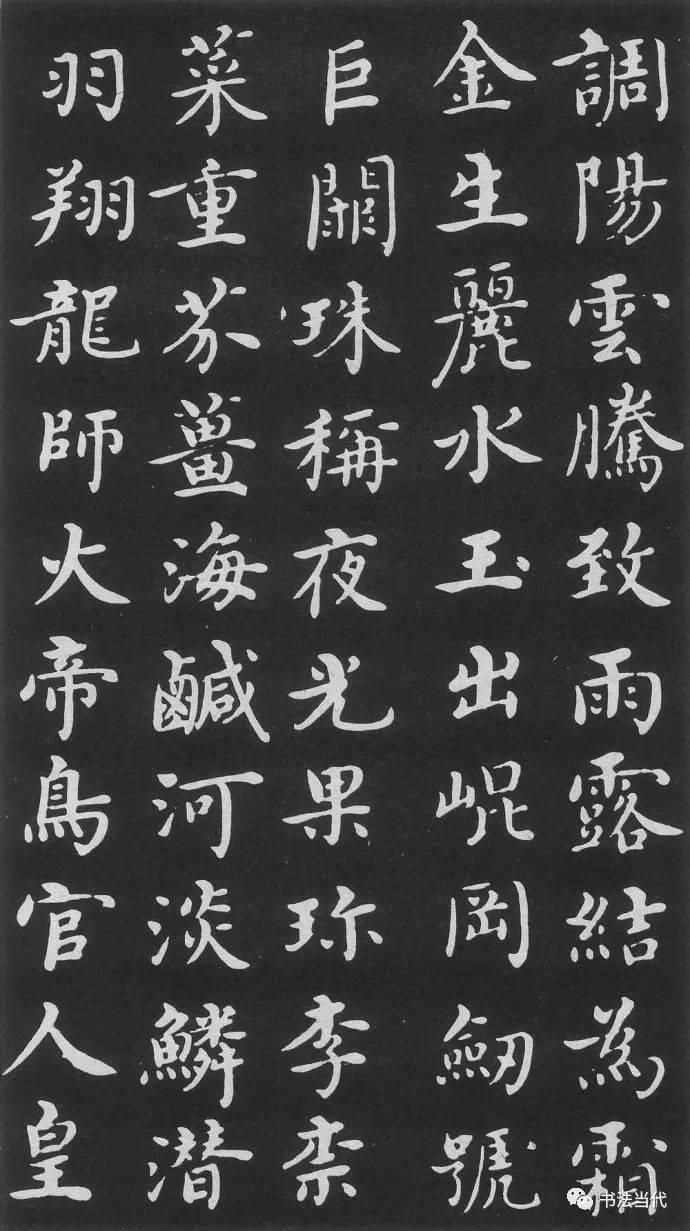 調陽雲騰致雨露結為霜
金生麗水玉出崐岡劒號
巨闕珠稱夜光果珎李柰
菜重芥薑海鹹河淡鱗潜
羽翔龍師火帝鳥官人皇
书法当代